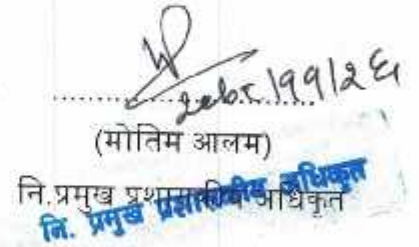 २०७८।११।२६
(मोतिम आलम)
नि.प्रमुख प्रशासकीय अधिकृत
नि. प्रमुख प्रशासकीय अधिकृत